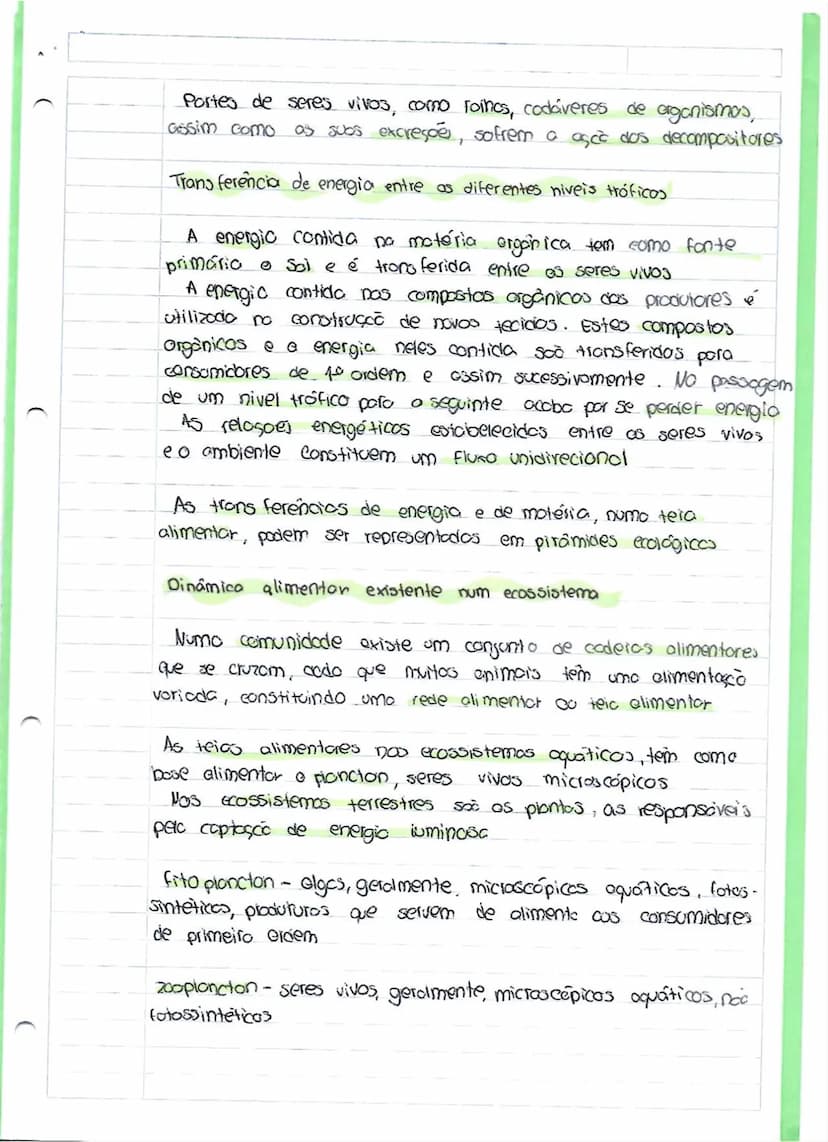 Partes de seres vivos, como folhas, cadáveres de organismos,
assim como as suas excreções, sofrem a ação dos decompositores
Transferência de energia entre os diferentes níveis tróficos
A energia contida na matéria orgânica tem como fonte
primária o Sol e é transferida entre os seres vivos
A energia contida nos compostos orgânicos dos produtores é
utilizada na construção de novos tecidos. Estes compostos
orgânicos e a energia neles contida são transferidos para
consumidores de 1º ordem e assim sucessivamente. Na passagem
de um nível trófico para o seguinte acaba por se perder energia
As relações energéticas estabelecidas entre os seres vivos
e o ambiente constituem um fluxo unidirecional
As transferências de energia e de matéria, numa teia
alimentar, podem ser representadas em pirâmides ecológicas
Dinâmica alimentar existente num ecossistema
Numa comunidade existe um conjunto de cadeias alimentares
que se cruzam, dado que muitos animais têm uma alimentação
variada, constituindo uma rede alimentar ou teia alimentar
As teias alimentares nos ecossistemas aquáticos, têm como
base alimentar o plâncton, seres vivos microscópicos
Nos ecossistemas terrestres são as plantas, as responsáveis
pela captação de energia luminosa
Fitoplancton - algas, geralmente, microscópicas aquáticas, fotos-
sintéticas, produturos que servem de alimento aos consumidores
de primeiro ordem
zooplancton - seres vivos, geralmente, microscópicos aquáticos, não
fotossintéticos